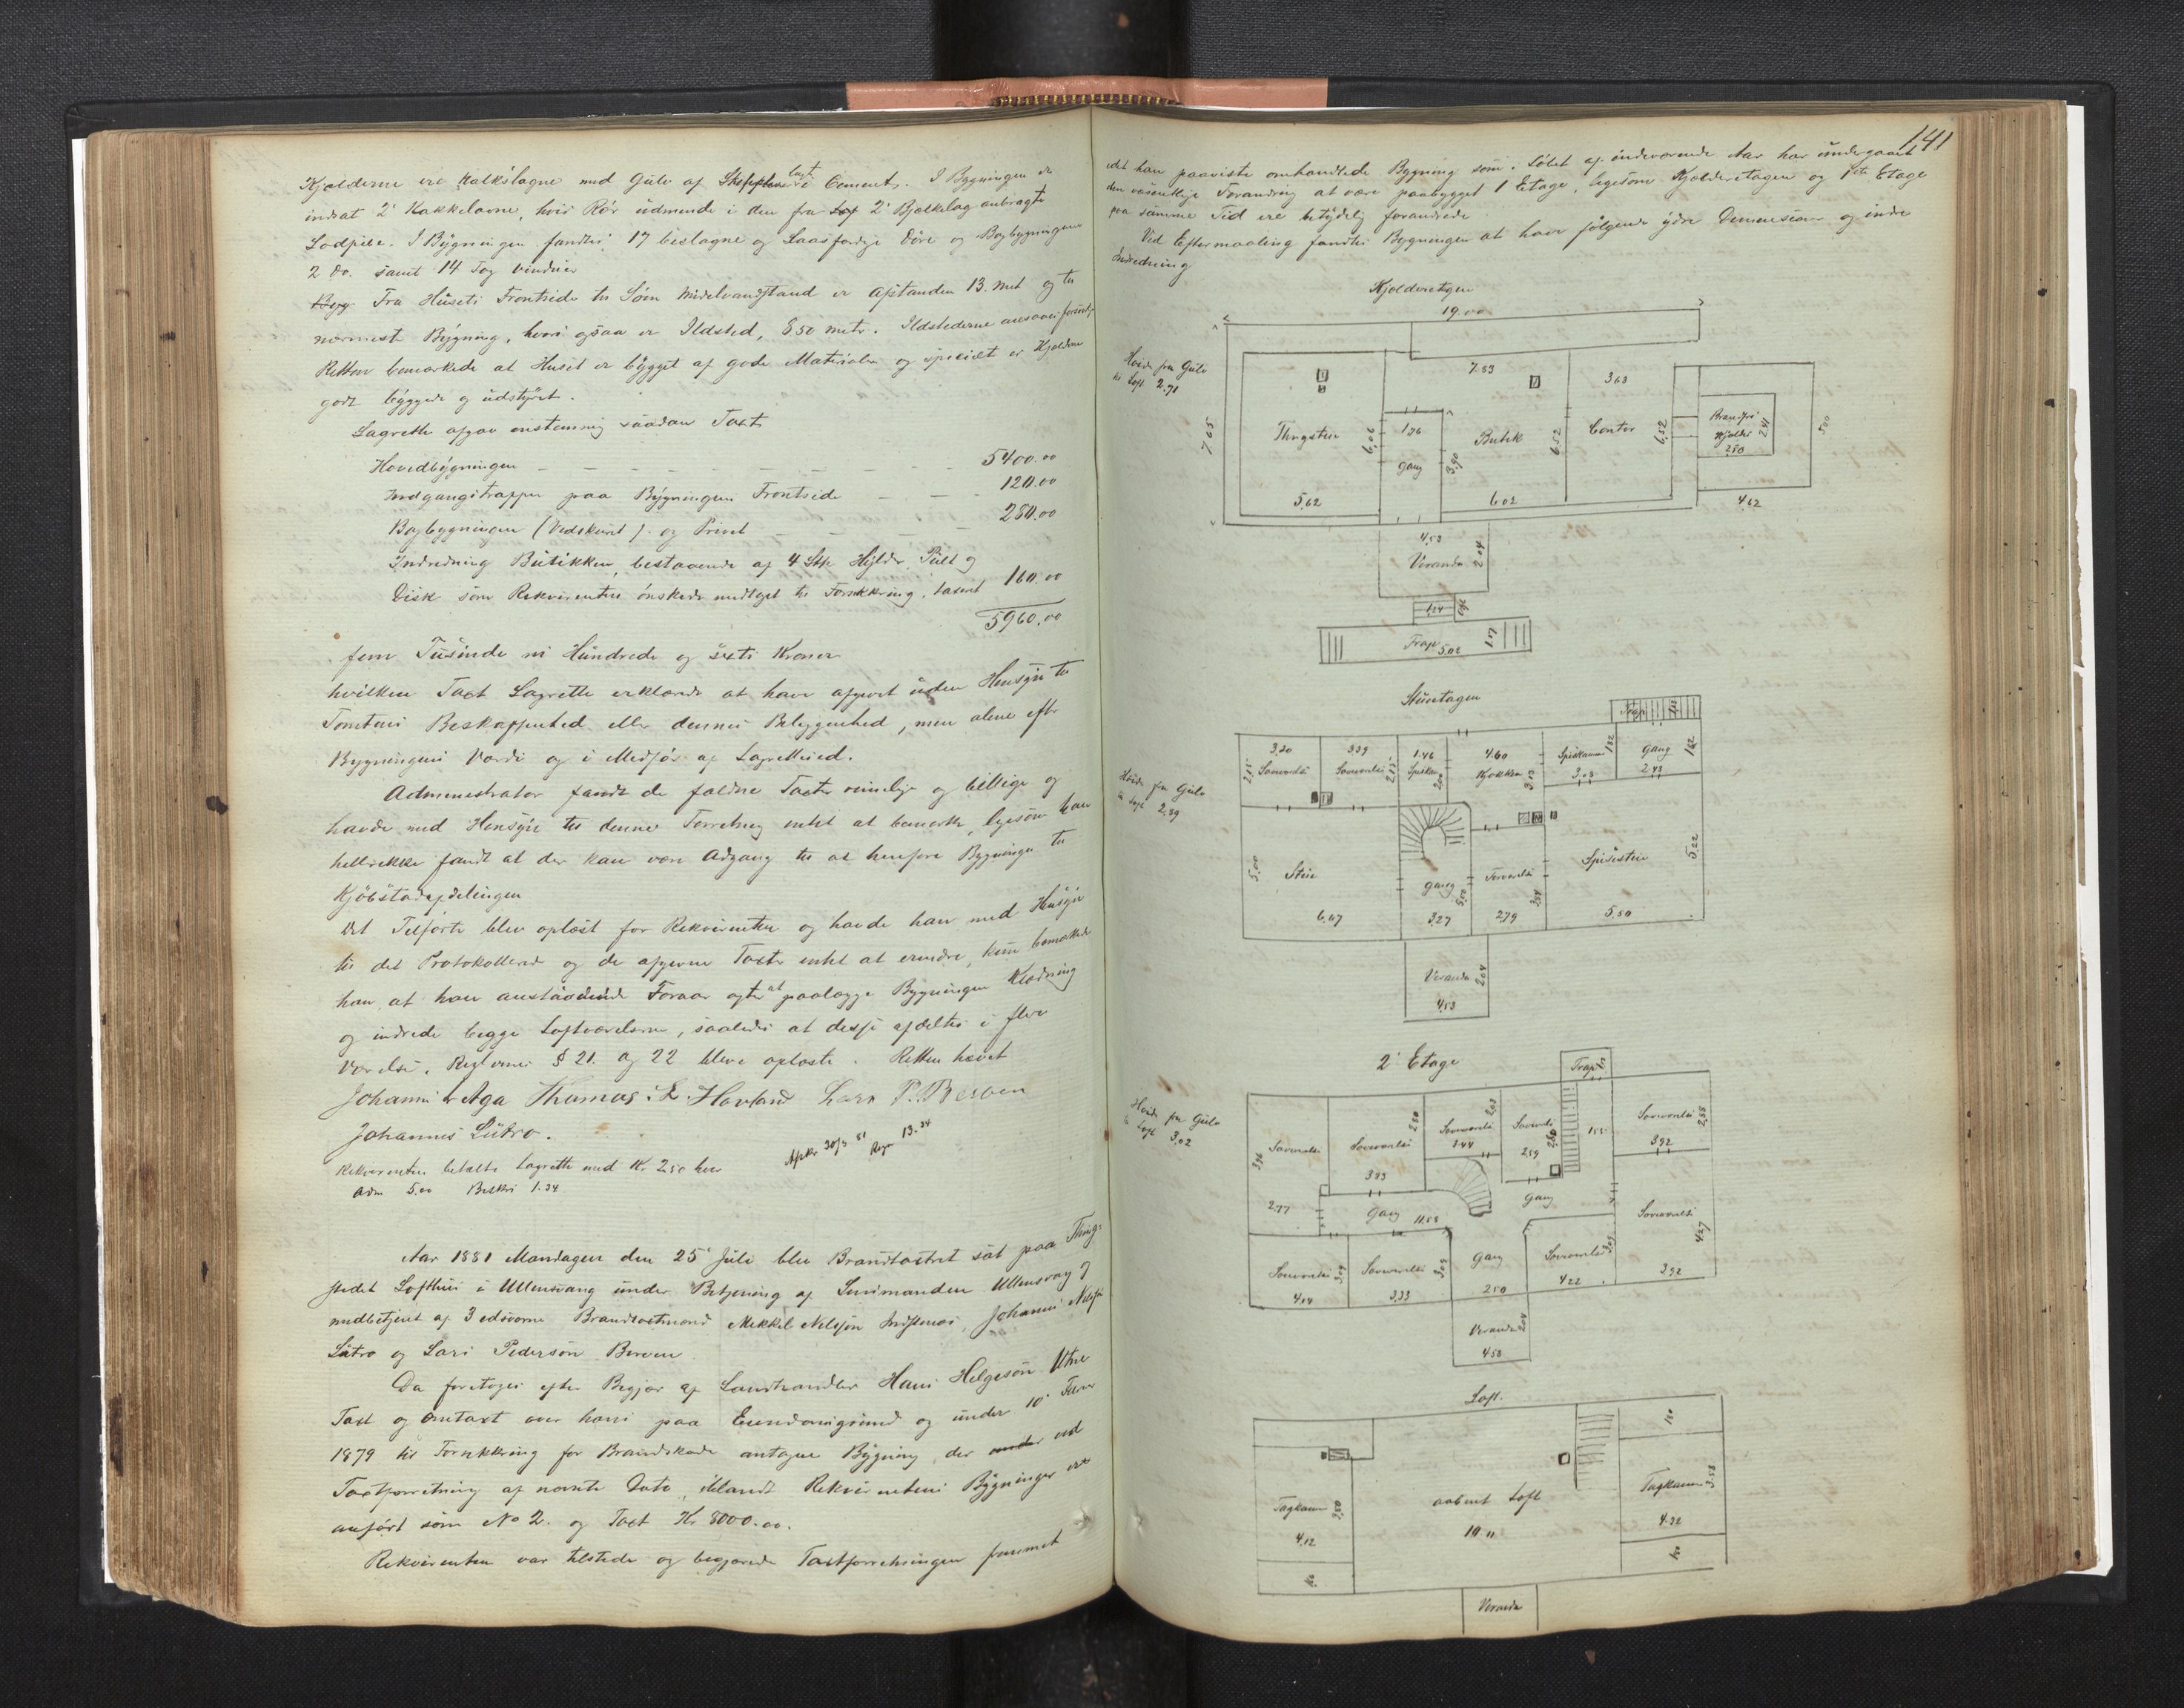 Kjælderne ere kalkslagne med Gulv af Skifer lagt i Cement. I Bygningen er
indsat 2 Kakkelovne, hvis Rør udmunde i den fra 2' Bjelkelag anbragte
Lodpibe. I Bygningen fandtes 17 beslagne og Laasfærdige Døre og Bagbygningen
2 do. samt 14 Fag Vinduer
Fra Husets Frontside til Søens Middelvandstand er Afstanden 13. met og til
nærmeste Bygning, hvori ogsaa er Ildsted, 8.50 metr. Ildstederne ansaaes forsvarlige
Retten bemærkede at Huset er bygget af gode Materialer og specielt er Kjælderen
godt bygget og udstyret.
Lagrette afgav enstemmig saadan Taxt
Hovedbygningen 5400.00
Indgangstrappe paa Bygningens Frontside 120.00
Bagbygningen (Vedskuret) og Privet 280.00
Indredning Butikken, bestaaende af 4 Stk Hylder, Pult og
Disk som Rekvirenten ønskede medtaget til Forsikkring, taxeret 160.00
5960.00
fem Tusinde ni Hundrede og sexti Kroner
hvilken Taxt Lagrette erklærede at have afgivet uden Hensyn til
Tomtens Beskaffenhed eller dennes Beliggenhed, men alene efter
Bygningens Værdi og i Medfør af Lagretteed.
Administrator fandt de faldne Taxter rimelige og billige og
havde med Hensyn til denne Forretning intet at bemærke, ligesom han
hellerikke fandt at der kan være Adgang til at henføre Bygningen til
Kjøbstadafdelingen
Det Tilførte blev oplæst for Rekvirenten og havde han med Hensyn
til det Protokollerede og de afgivne Taxter intet at erindre, kun bemærkede
han at han anstaaende Foraar agter at paalægge Bygningen Klædning
og indrede begge Loftværelserne, saaledes at disse afdeltes i flere
Værelser. Reglernes § 21. og 22 bleve oplæste. Retten hævet
Johannes Aga Thomas L. Hovland Lars P. Berven
Johannes Lutro.
Rekvirenten betalte Lagrette med Kr. 2.50 hver
Adm 5.00 Beskri 1.34
Afskr 30/3 81 13.34
Aar 1881 Mandagen den 25' Juli blev Brandtaxtret sat paa Thing-
stedet Lofthus i Ullensvang under Betjening af Lensmanden Ullensvang og
medbetjent af 3 edsvorne Brandtaxtmænd Mikkel Nelsen, Johannes Nelsen
Lutro og Lars Pedersøn Berven
Da foretoges efter Begjær af Landhandler Hans Helgesøn Utne
Taxt og Omtaxt over hans paa Eiendomsgrund og under 10'
1879 til Forsikkring for Brandskade antagne Bygning, der ved
Taxtforretning af nævnte Dato, iblandt Rekvirentens Bygninger er
anført som No 2. og Taxt Kr. 8000.00.
Rekvirenten var tilstede og begjærede Taxtforretningen fremmet
141
idet han paaviste omhandlede Bygning som i Løbet af indeværende Aar har undergaaet
den væsentlige Forandring at være paabygget 1 Etage, ligesom Kjælderetagen og 1ste Etage
paa samme Tid ere betydelig forandrede
Ved Eftermaaling fandtes Bygningen at have følgende ydre Dimensioner og indre
Indredning
Kjælderetagen
19.00
Høide fra Gulv
til Loft 2.71
7.65
7.53
3.63
Thingstue 6.06
1.76
Gang 3.90
Butik
6.52
Contor 6.52
Brandfri
Kjelder
2.50
2.41
5.00
5.62
6.02
4.62
4.53
Veranda 2.04
1.24
Trap
5.02
1.17
Stueetagen
Trap
Høide fra Gulv
til Loft 2.89
3.20
Soveværelse
3.39
Soveværelse
1.46
Spiskam
4.60
Kjøkken
Spiskammer
3.03
1.82
Gang
2.43
1.82
5.00
Stue
6.47
Gang
5.50
3.27
Forværelse
2.79
Spisestue
5.22
5.50
Veranda
2.04
4.53
2' Etage
Trap
Høide fra Gulv
til Loft
3.02
Soveværelse
2.77
Soveværelse
3.83
2.80
Soveværelse
3.44
2.03
Soveværelse
2.59
2.80
1.55
Soveværelse
3.92
2.55
Gang 11.58
Gang
Soveværelse
4.27
3.92
Soveværelse
4.14
Soveværelse
3.33
3.09
Gang
2.50
Soveværelse
4.22
3.09
Veranda
2.04
4.50
Loft.
Tagkam
3.50
4.12
aabent Loft
10.11
Tagkam
3.58
4.32
Veranda